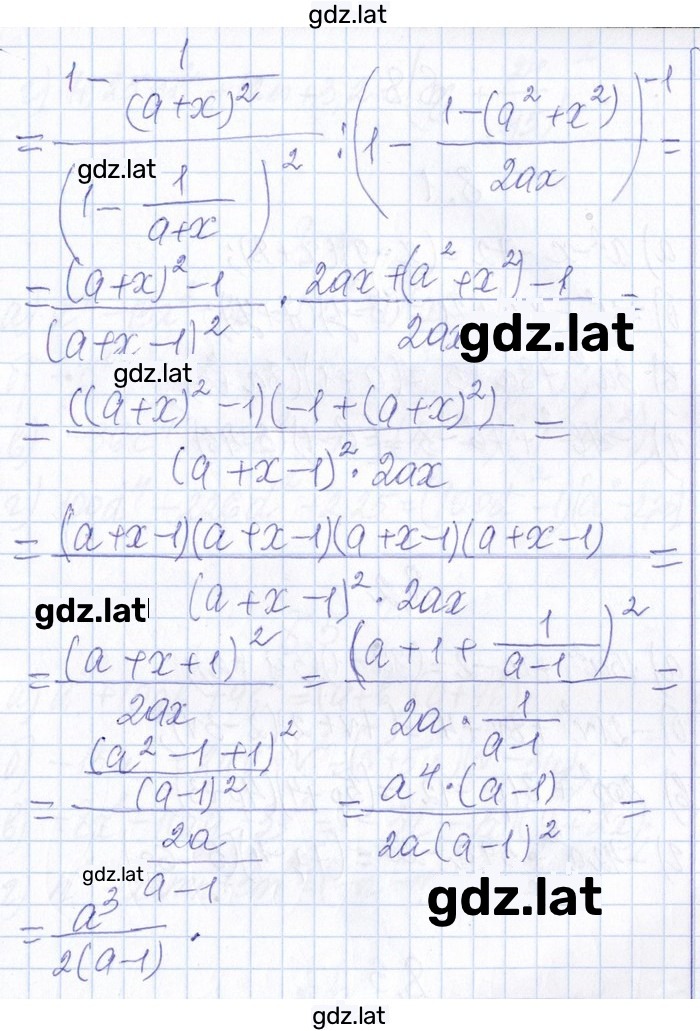 gdz.lat
= (1 - 1/(a+x)^2) / (1 - 1/(a+x))^2 : (1 - (1-(a^2+x^2))/2ax)^-1 =
gdz.lat
= ((a+x)^2-1)/(a+x-1)^2 · (2ax+(a^2+x^2)-1)/2ax =
gdz.lat
gdz.lat
= ((a+x)^2-1)(-1+(a+x)^2) / (a+x-1)^2·2ax =
= (a+x-1)(a+x-1)(a+x-1)(a+x-1) / (a+x-1)^2·2ax =
gdz.lat
= (a+x+1)^2/2ax = (a+1+1/(a-1))^2 / (2a·1/(a-1)) =
= ((a^2-1+1)^2/(a-1)^2) / (2a/(a-1)) = a^4·(a-1) / 2a(a-1)^2 =
gdz.lat
gdz.lat
= a^3/2(a-1).
gdz.lat